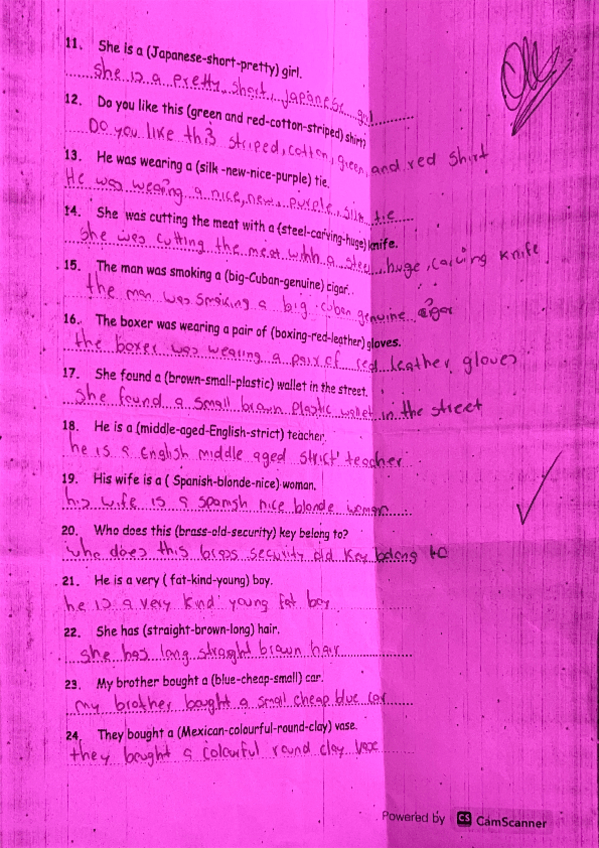 11. She is a (Japanese-short-pretty) girl.
She is a pretty, short, japanese girl
12. Do you like this (green and red-cotton-striped) shirt?
Do you like this striped, cotton, green, and red shirt
13. He was wearing a (silk -new-nice-purple) tie.
He was wearing a nice, new, purple, silk tie
14. She was cutting the meat with a (steel-carving-huge) knife.
She was cutting the meat with a steel, huge, carving knife
15. The man was smoking a (big-Cuban-genuine) cigar.
the man was smoking a big cuban genuine cigar
16. The boxer was wearing a pair of (boxing-red-leather) gloves.
the boxer was wearing a pair of red leather gloves
17. She found a (brown-small-plastic) wallet in the street.
She found a small brown plastic wallet in the street
18. He is a (middle-aged-English-strict) teacher.
he is a English middle aged strict teacher
19. His wife is a ( Spanish-blonde-nice) woman.
his wife is a spanish nice blonde woman
20. Who does this (brass-old-security) key belong to?
who does this brass security old key belong to
21. He is a very ( fat-kind-young) boy.
he is a very kind young fat boy
22. She has (straight-brown-long) hair.
she has long straght brown hair
23. My brother bought a (blue-cheap-small) car.
my brother bought a small cheap blue car
24. They bought a (Mexican-colourful-round-clay) vase.
they bought a colourful round clay vase
Powered by CS CamScanner